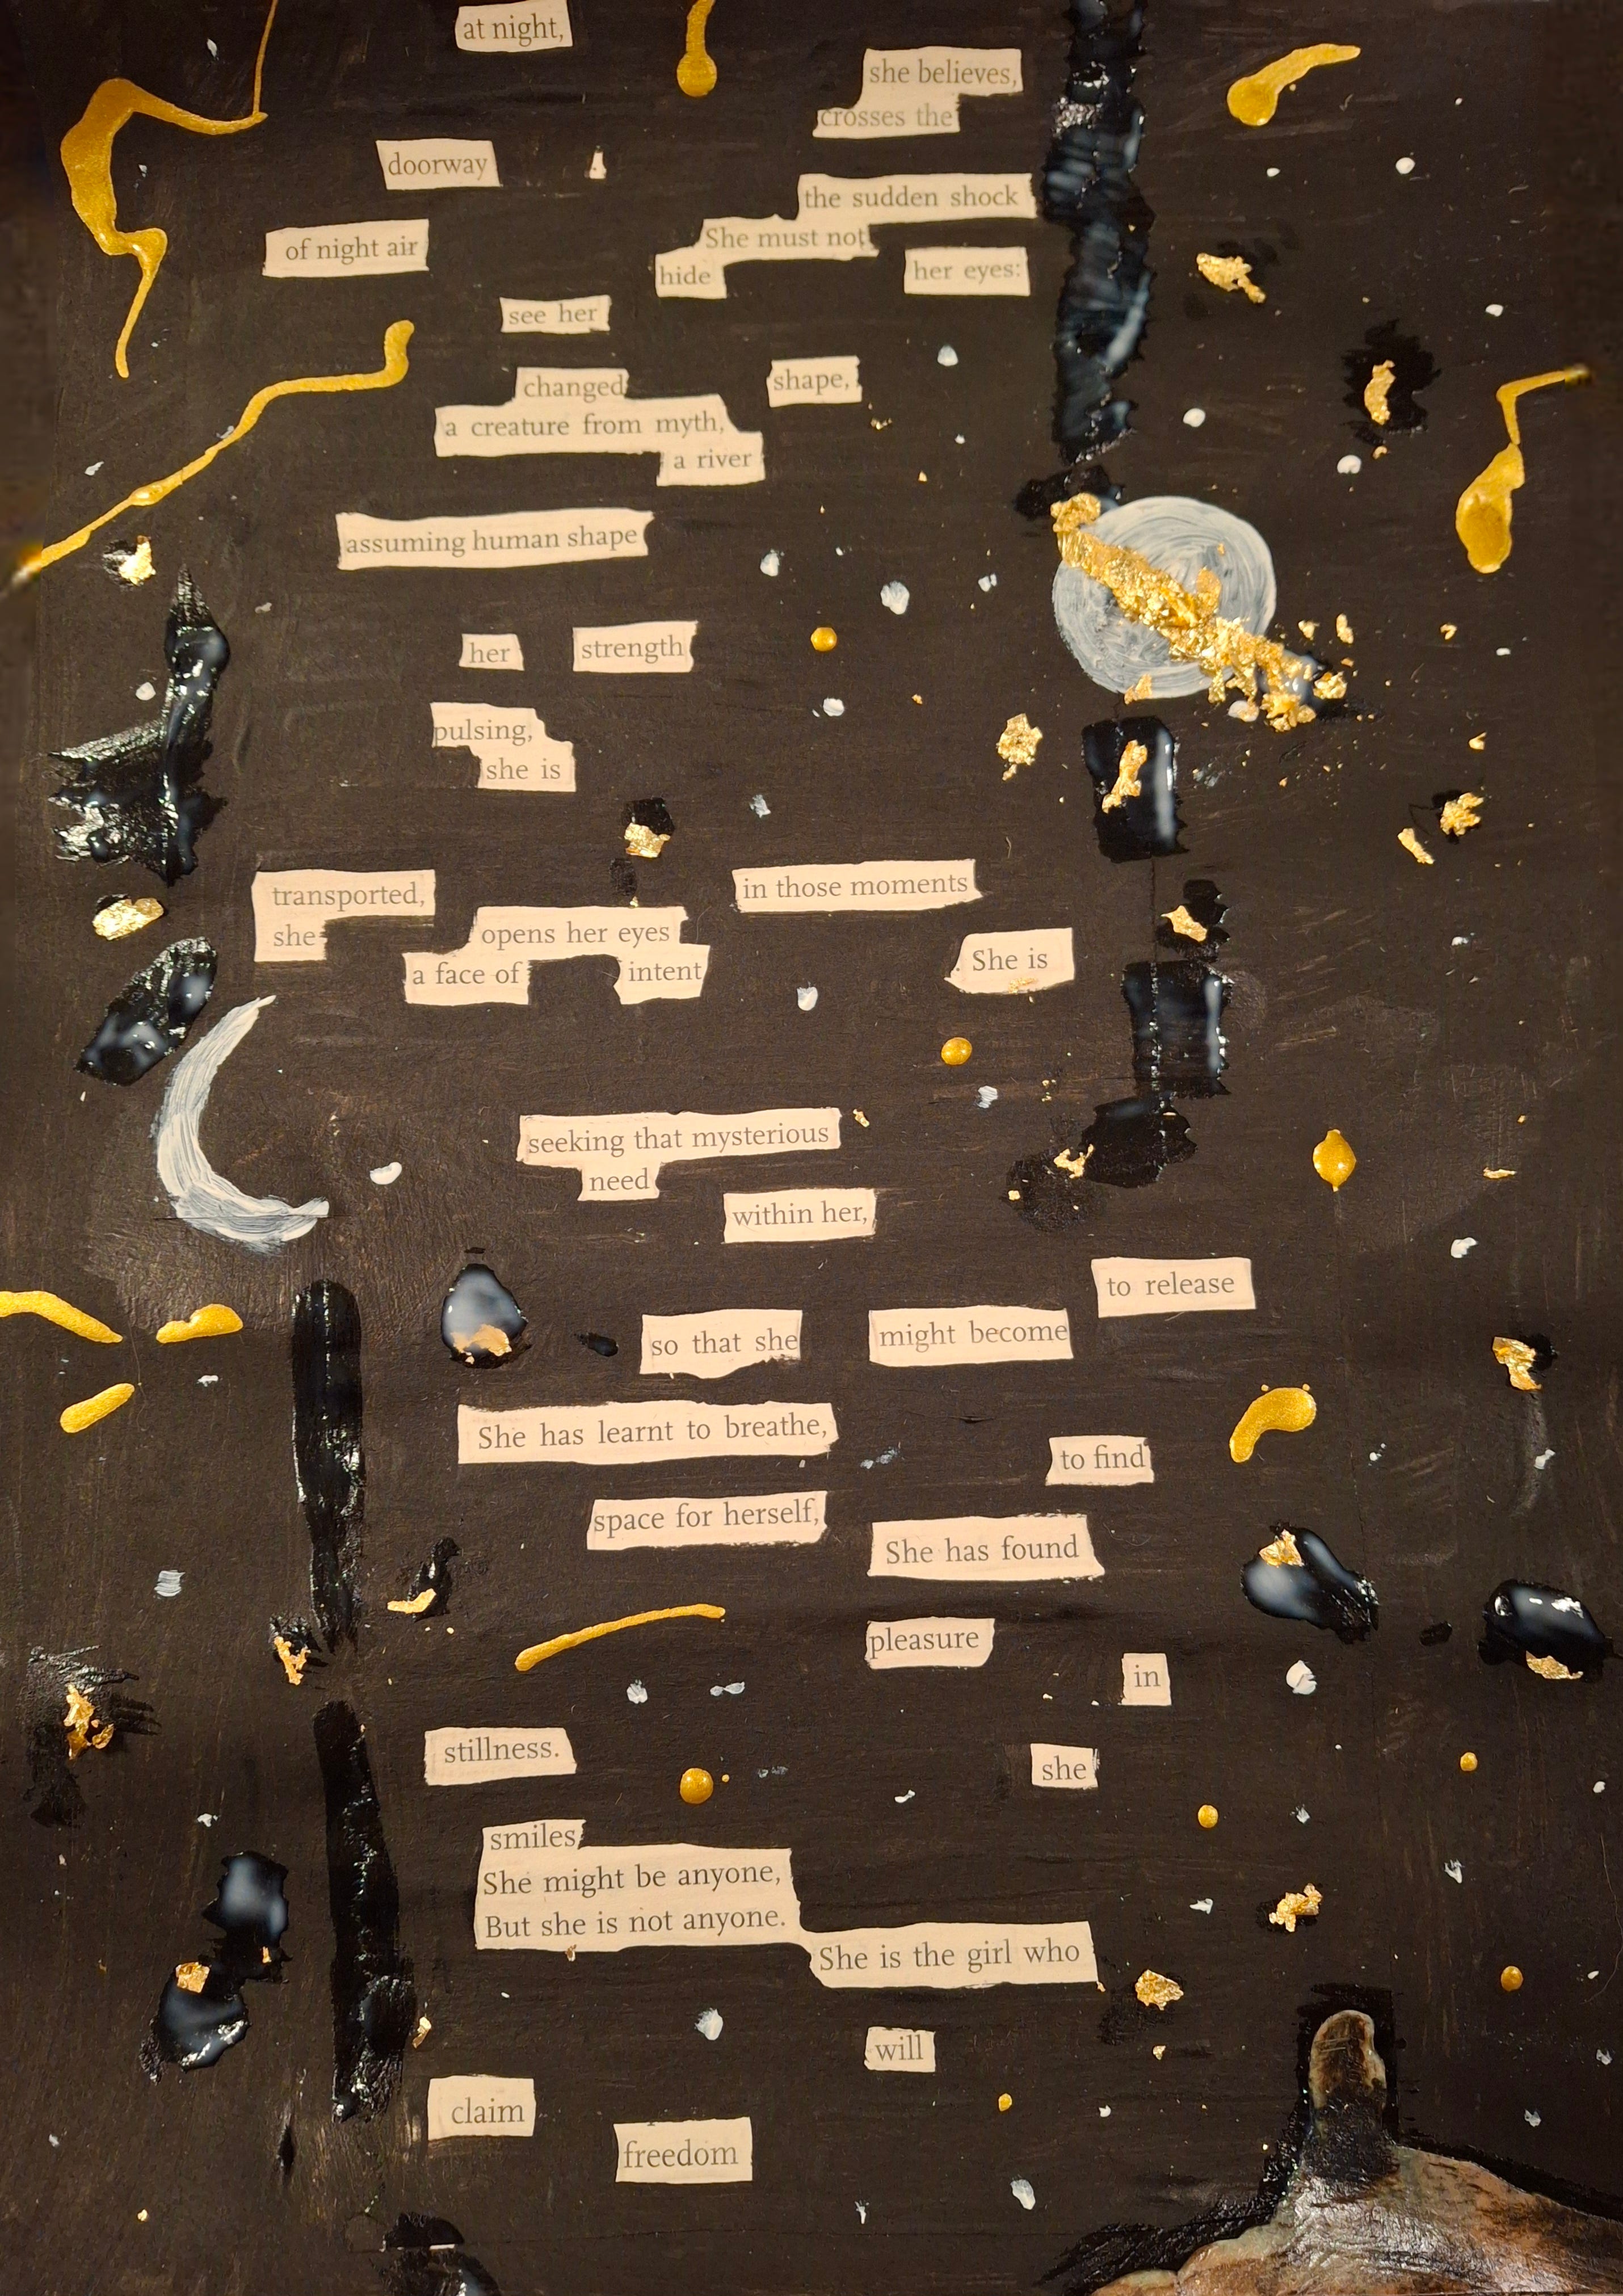 at night,
she believes,
crosses the
doorway
the sudden shock
of night air
She must not
hide
her eyes:
see her
changed
shape,
a creature from myth,
a river
assuming human shape
her strength
pulsing,
she is
transported,
in those moments
she
opens her eyes
a face of intent
She is
seeking that mysterious
need
within her,
to release
so that she might become
She has learnt to breathe,
to find
space for herself,
She has found
pleasure
in
stillness.
she
smiles
She might be anyone,
But she is not anyone.
She is the girl who
will
claim
freedom